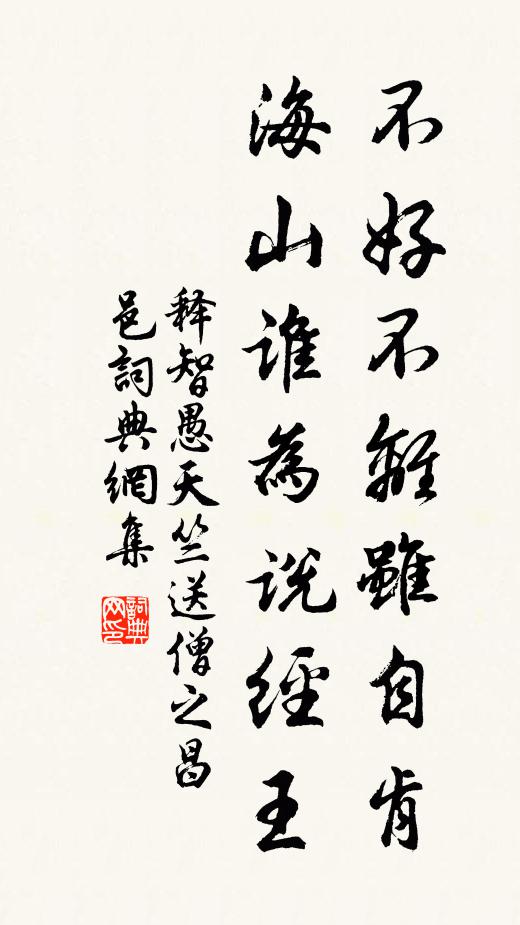 不好不離雖自肯
海山誰為説經王
释智愚天竺送僧之昌
邑詞典網集
詞典网印